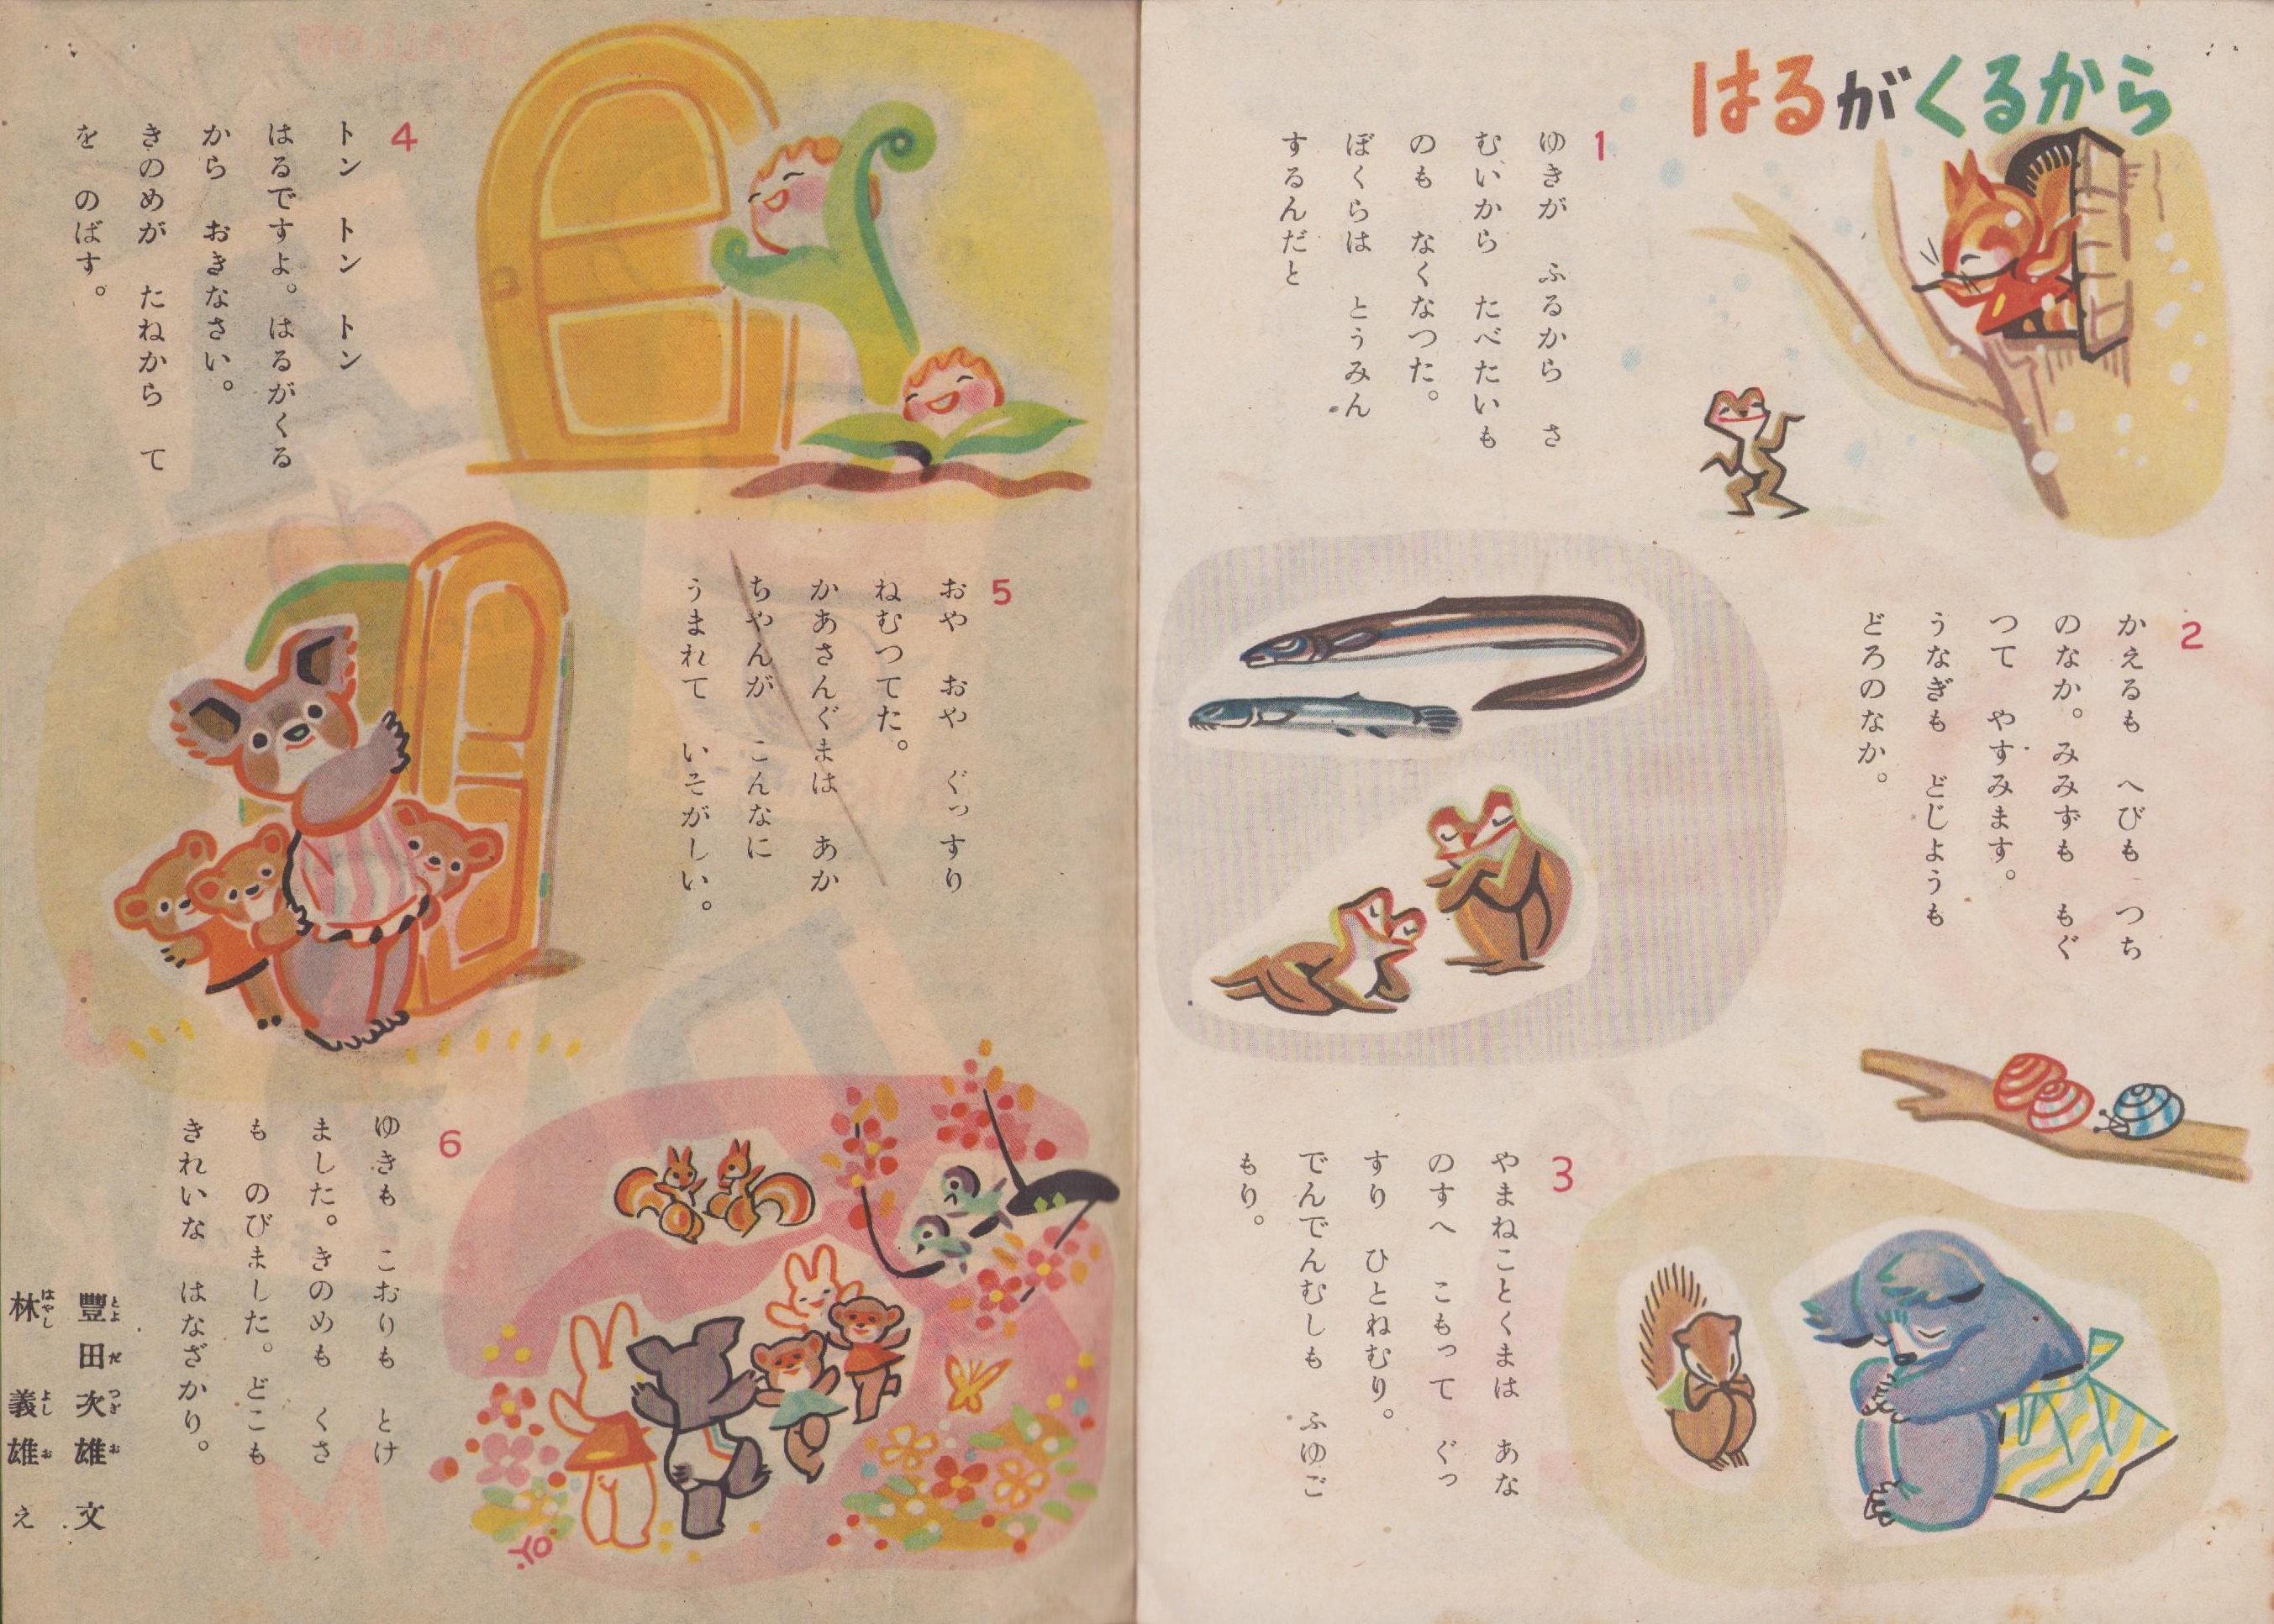 はるがくるから
1
ゆきが ふるから さ
むいから たべたいも
のも なくなつた。
ぼくらは とうみん
するんだと
2
かえるも へびも つち
のなか。みみずも もぐ
つて やすみます。
うなぎも どじようも
どろのなか。
3
やまねことくまは あな
のすへ こもって ぐっ
すり ひとねむり。
でんでんむしも ふゆご
もり。
4
トン トン トン
はるですよ。はるがくる
から おきなさい。
きのめが たねから て
を のばす。
5
おや おや ぐっすり
ねむつてた。
かあさんぐまは あか
ちゃんが こんなに
うまれて いそがしい。
6
ゆきも こおりも とけ
ました。きのめも くさ
も のびました。どこも
きれいな はなざかり。
豐田次雄 文
とよだつぎお
林義雄 え
はやしよしお